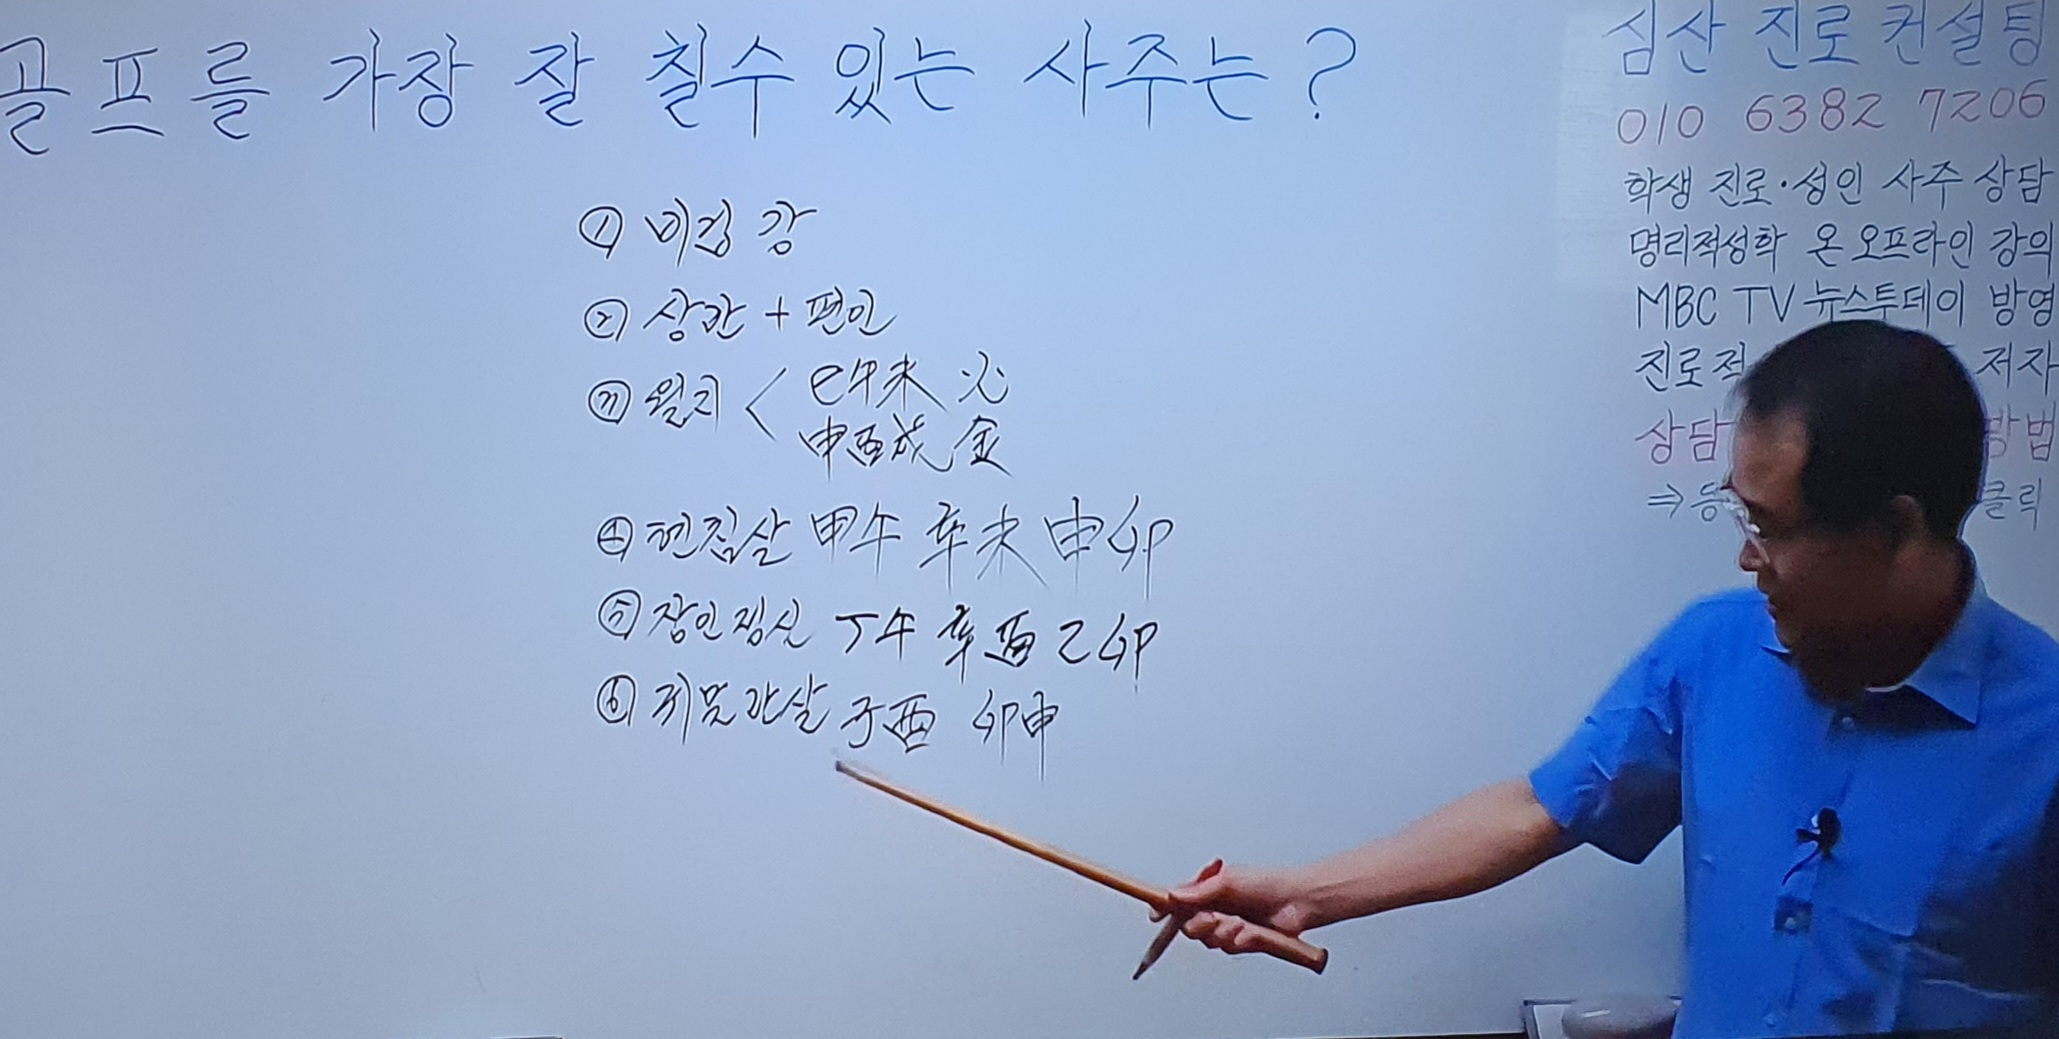 골프를 가장 잘 칠수 있는 사주는?
① 비겁 강
② 상관 + 편인
③ 월지 < 巳午未 火
申酉戌 金
④ 현침살 甲午 辛未 申卯
⑤ 장인정신 丁午 辛酉 乙卯
⑥ 귀문관살 子酉 卯申
심산 진로 컨설팅
010 6382 7206
학생 진로·성인 사주 상담
명리적성학 온오프라인 강의
MBC TV 뉴스투데이 방영
진로적 저자
상담 방법
⇒ 클릭